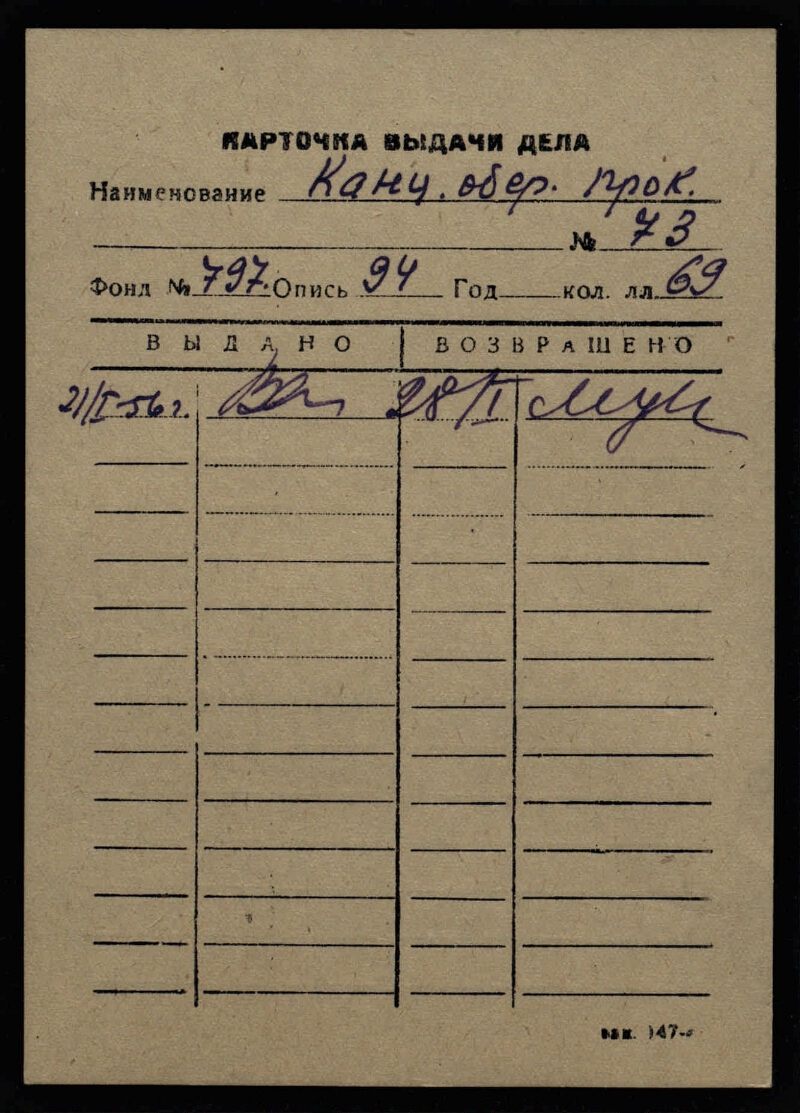 КАРТОЧКА ВЫДАЧИ ДЕЛА
Наименование Канц. обер. Прок.
№ 73
Фонд № 797 Опись 94 Год кол. лл. 69
ВЫДАНО ВОЗВРАЩЕНО
28/II
зак. 147